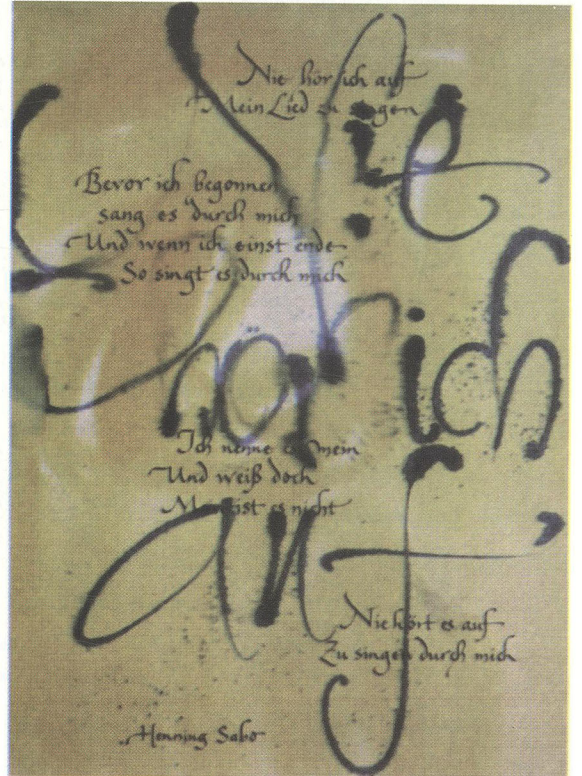 Nie
hör ich
auf
Nie hör ich auf
Mein Lied zu singen
Bevor ich begonnen
sang es durch mich
Und wenn ich einst ende
So singt es durch mich
Ich nenne es mein
Und weiß doch
Mein ist es nicht
Nie hört es auf
Zu singen durch mich
Henning Sabo